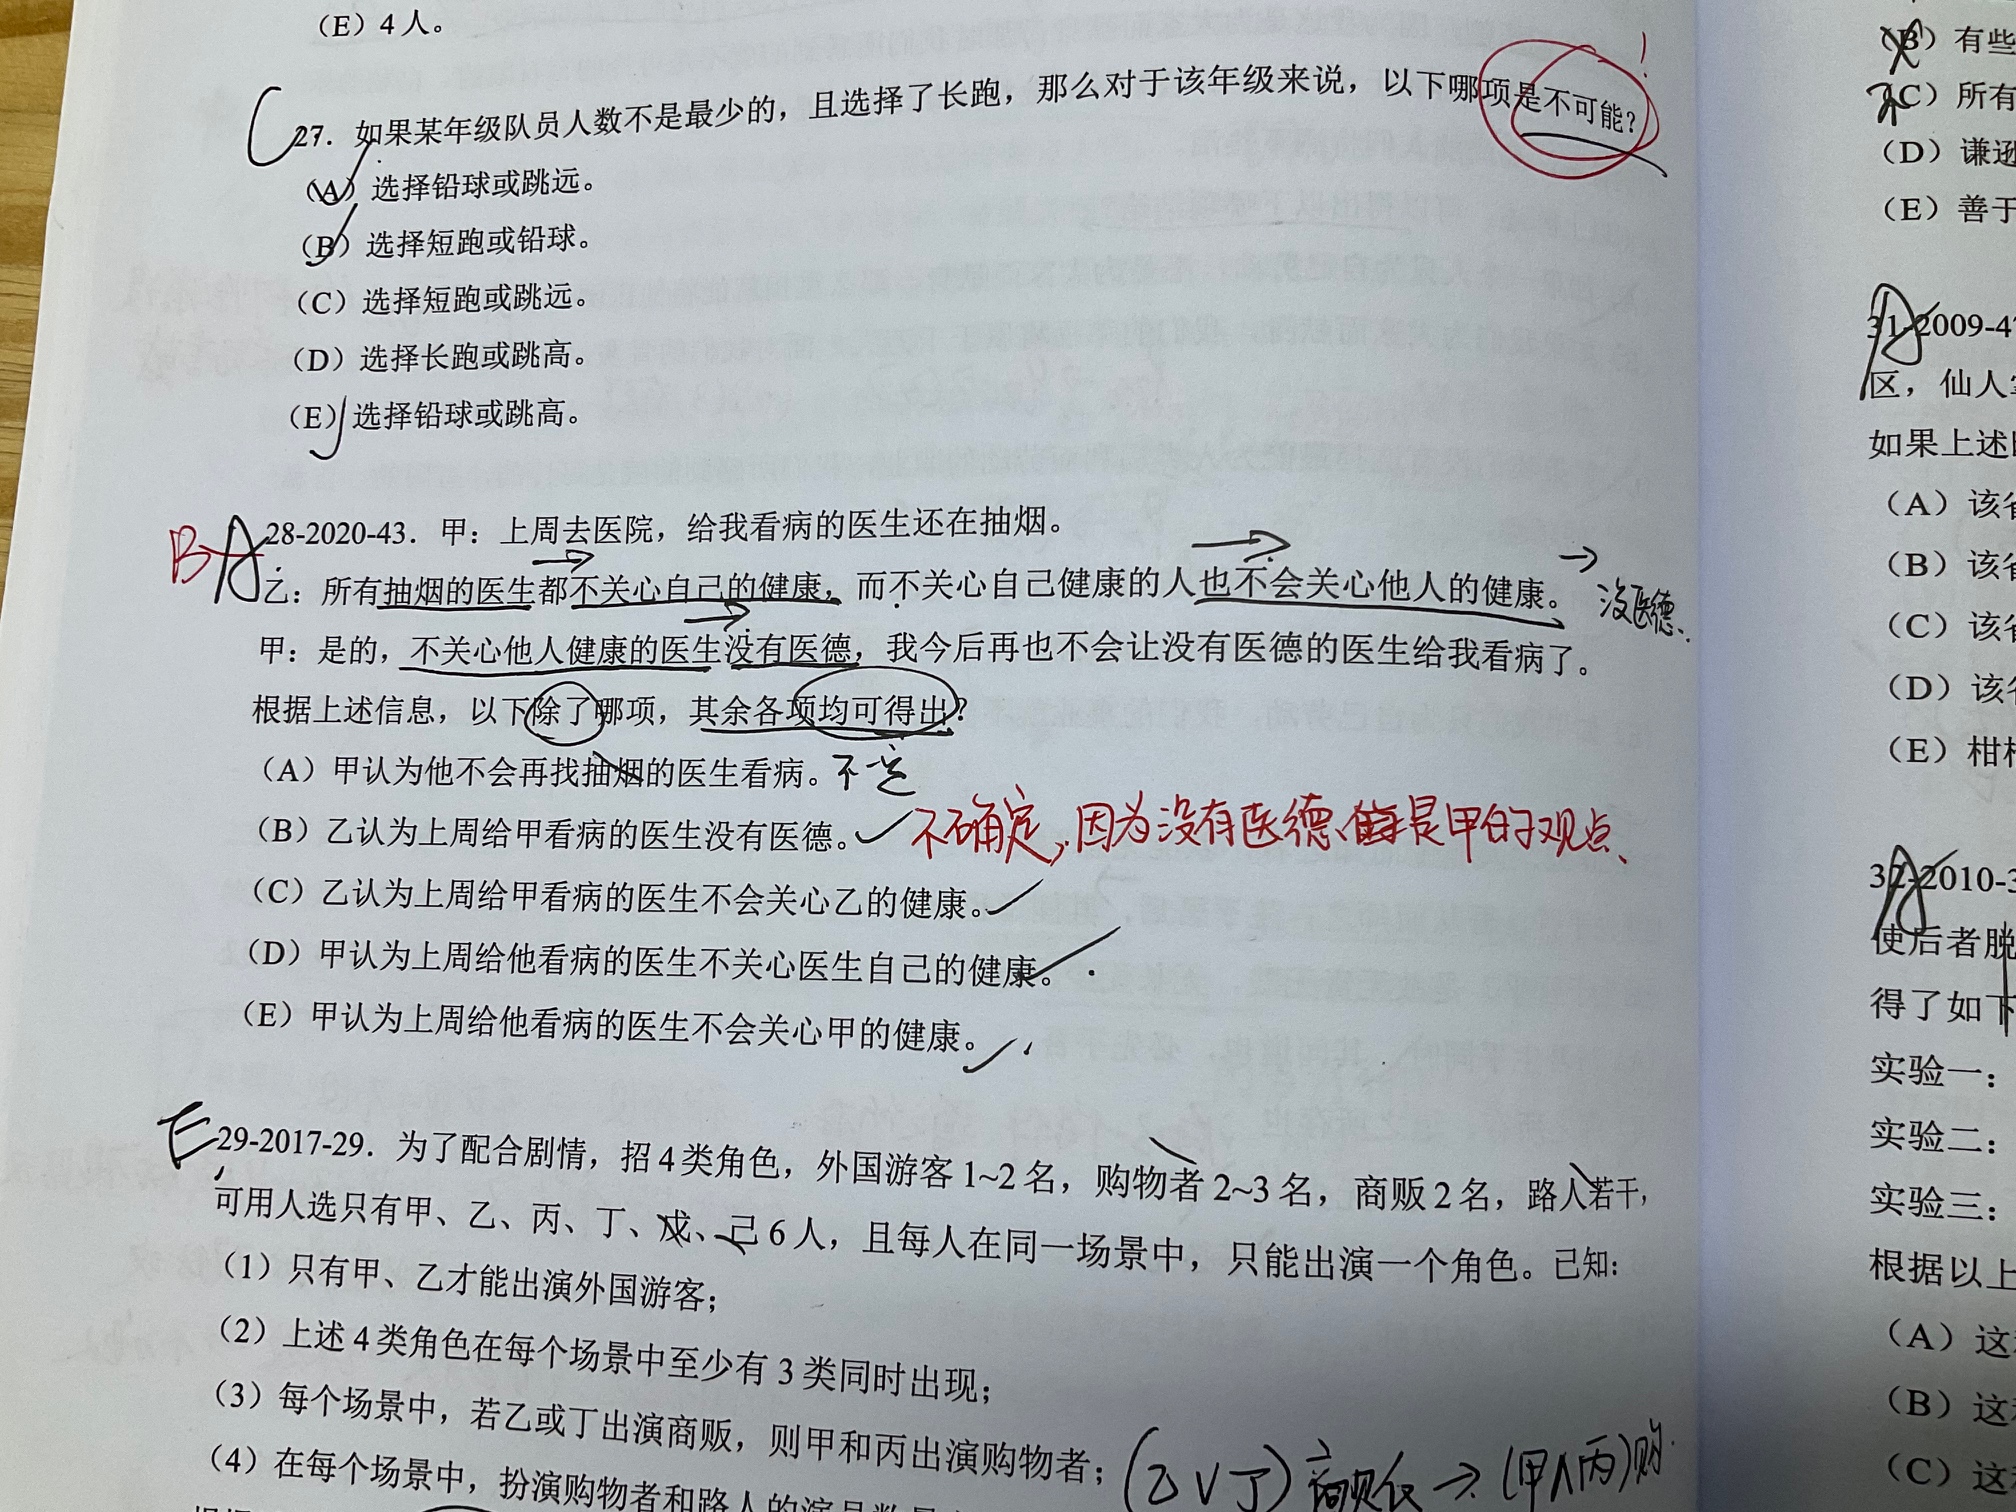 （E）4人。
C 27. 如果某年级队员人数不是最少的，且选择了长跑，那么对于该年级来说，以下哪项是不可能？ !
（A）选择铅球或跳远。
（B）选择短跑或铅球。
（C）选择短跑或跳远。
（D）选择长跑或跳高。
（E）选择铅球或跳高。
B A 28-2020-43. 甲：上周去医院，给我看病的医生还在抽烟。
乙：所有抽烟的医生都不关心自己的健康，而不关心自己健康的人也不会关心他人的健康。 → 没医德
甲：是的，不关心他人健康的医生没有医德，我今后再也不会让没有医德的医生给我看病了。
根据上述信息，以下除了哪项，其余各项均可得出？
（A）甲认为他不会再找抽烟的医生看病。不一定
（B）乙认为上周给甲看病的医生没有医德。 不确定，因为没有医德 是甲的观点、
（C）乙认为上周给甲看病的医生不会关心乙的健康。
（D）甲认为上周给他看病的医生不关心医生自己的健康。
（E）甲认为上周给他看病的医生不会关心甲的健康。
E 29-2017-29. 为了配合剧情，招4类角色，外国游客1~2名，购物者2~3名，商贩2名，路人若干，
可用人选只有甲、乙、丙、丁、戊、己6人，且每人在同一场景中，只能出演一个角色。已知：
（1）只有甲、乙才能出演外国游客；
（2）上述4类角色在每个场景中至少有3类同时出现；
（3）每个场景中，若乙或丁出演商贩，则甲和丙出演购物者；
（4）在每个场景中，扮演购物者和路人的演员数量
(乙∨丁)商贩 → (甲∧丙)购
（B）有些
（C）所有
（D）谦逊
（E）善于
31-2009-4
区，仙人
如果上述
（A）该省
（B）该省
（C）该省
（D）该省
（E）柑
32-2010-3
使后者脱
得了如下
实验一：
实验二：
实验三：
根据以上
（A）这
（B）这
（C）这